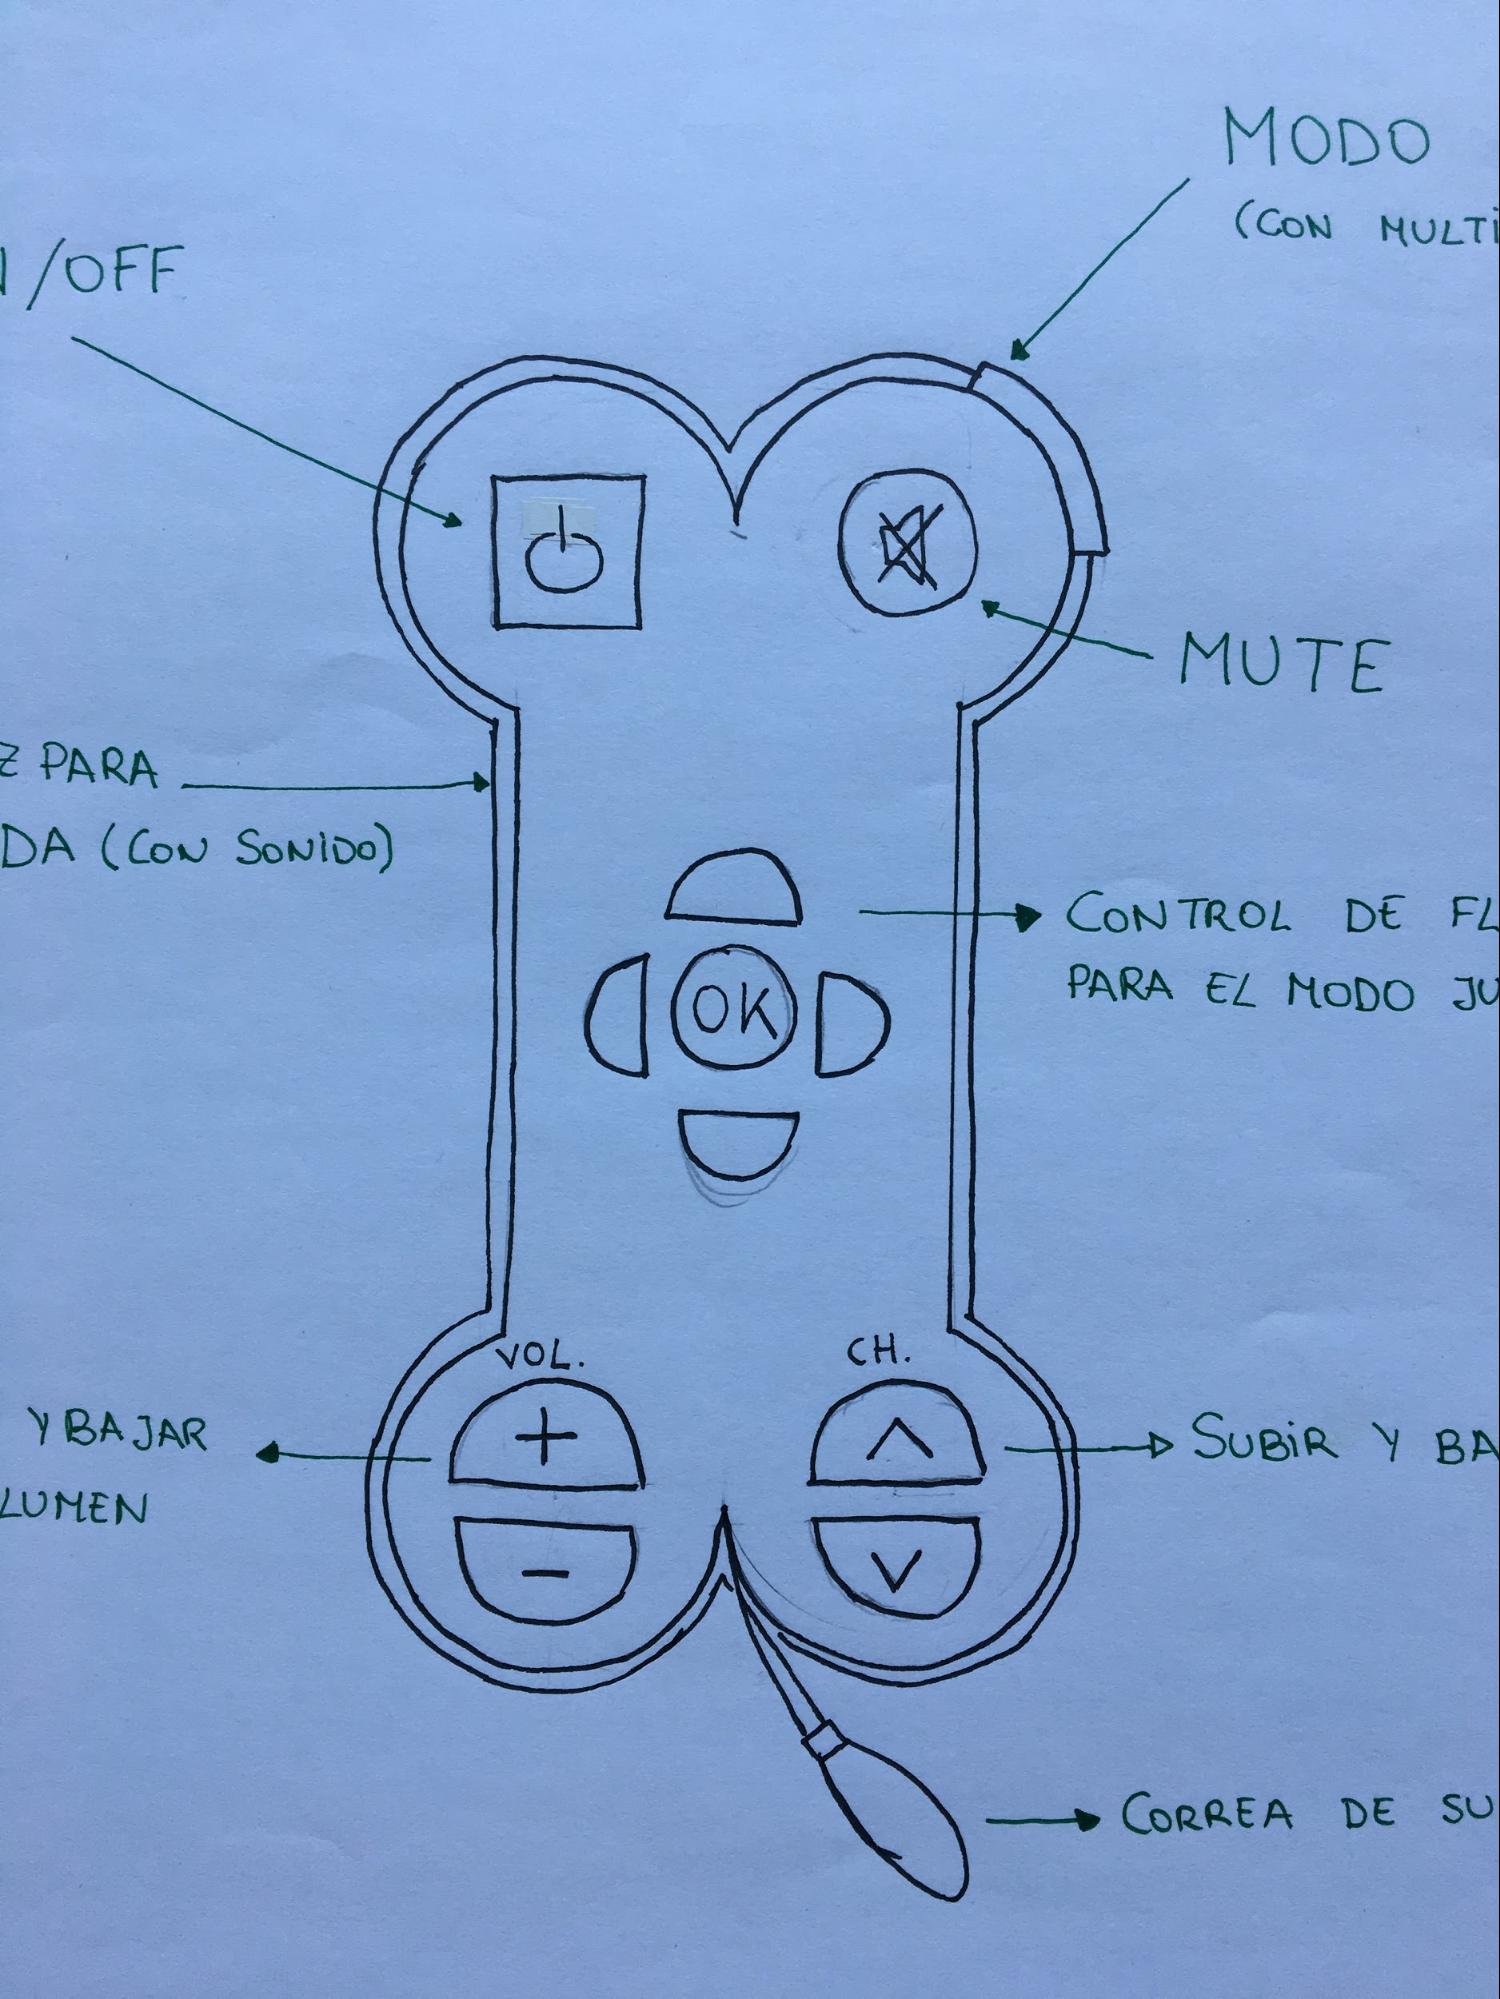 MODO
(CON MULTI
/OFF
MUTE
PARA
(CON SONIDO)
CONTROL DE
PARA EL MODO
OK
VOL.
CH.
+
-
Y BAJAR
SUBIR Y
CORREA DE